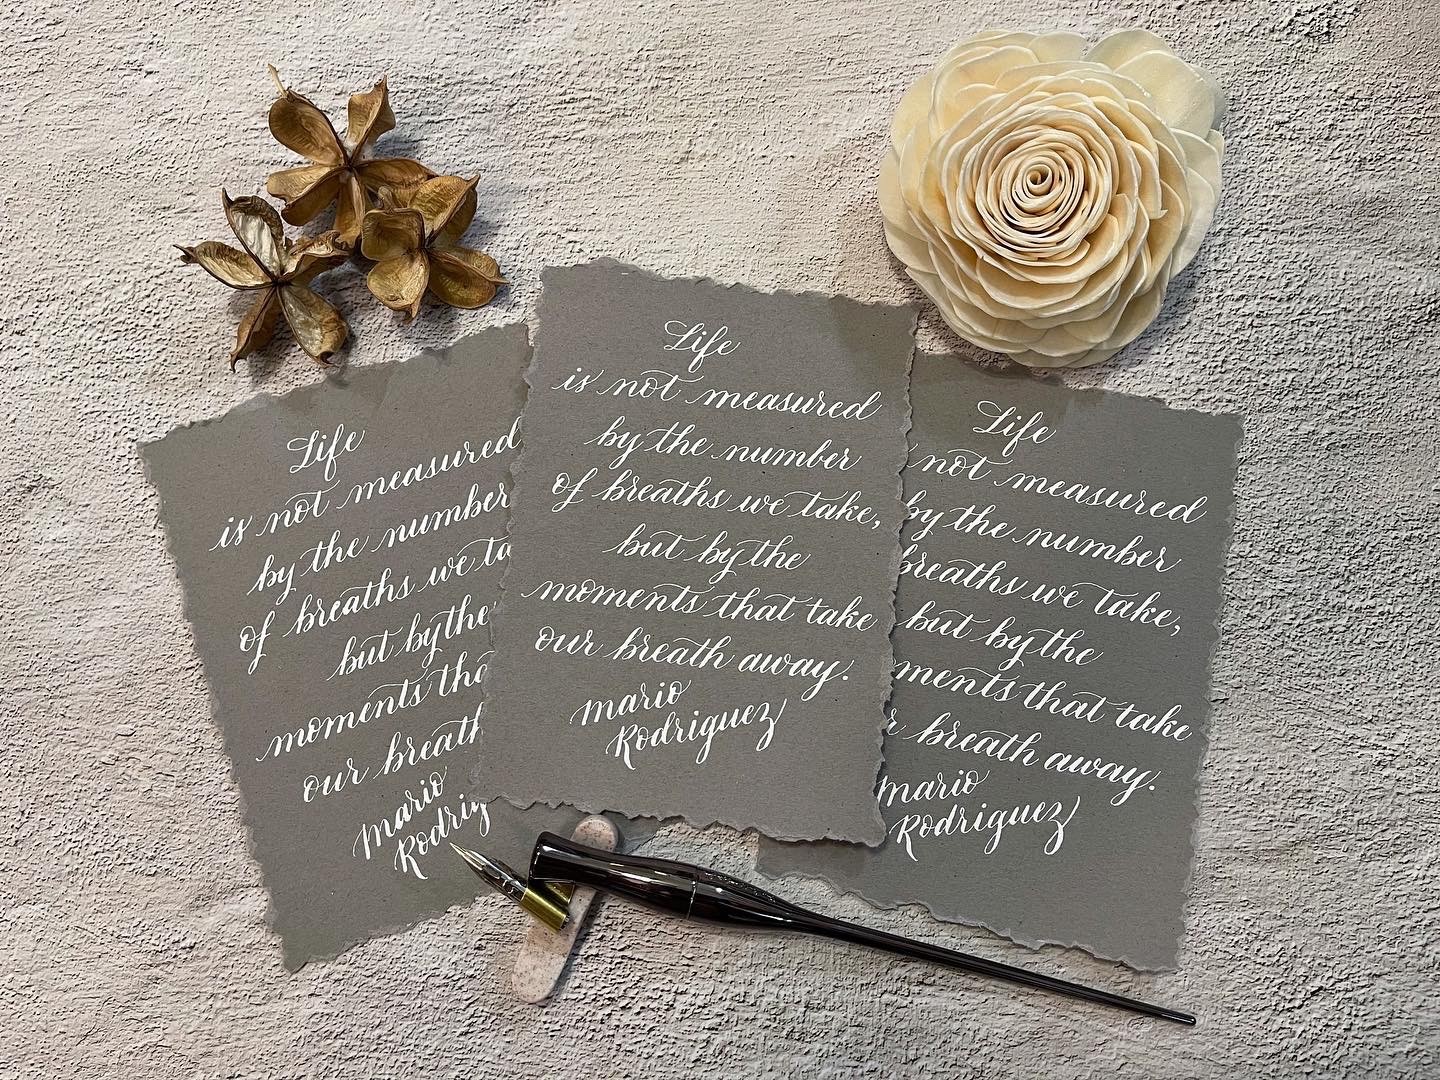 Life
is not measured
by the number
of breaths we ta
but by the
moments tha
our breath
mario
Rodrig
Life
is not measured
by the number
of breaths we take,
but by the
moments that take
our breath away.
mario
Rodriguez
Life
not measured
by the number
breaths we take,
but by the
ments that take
r breath away.
mario
Rodriguez